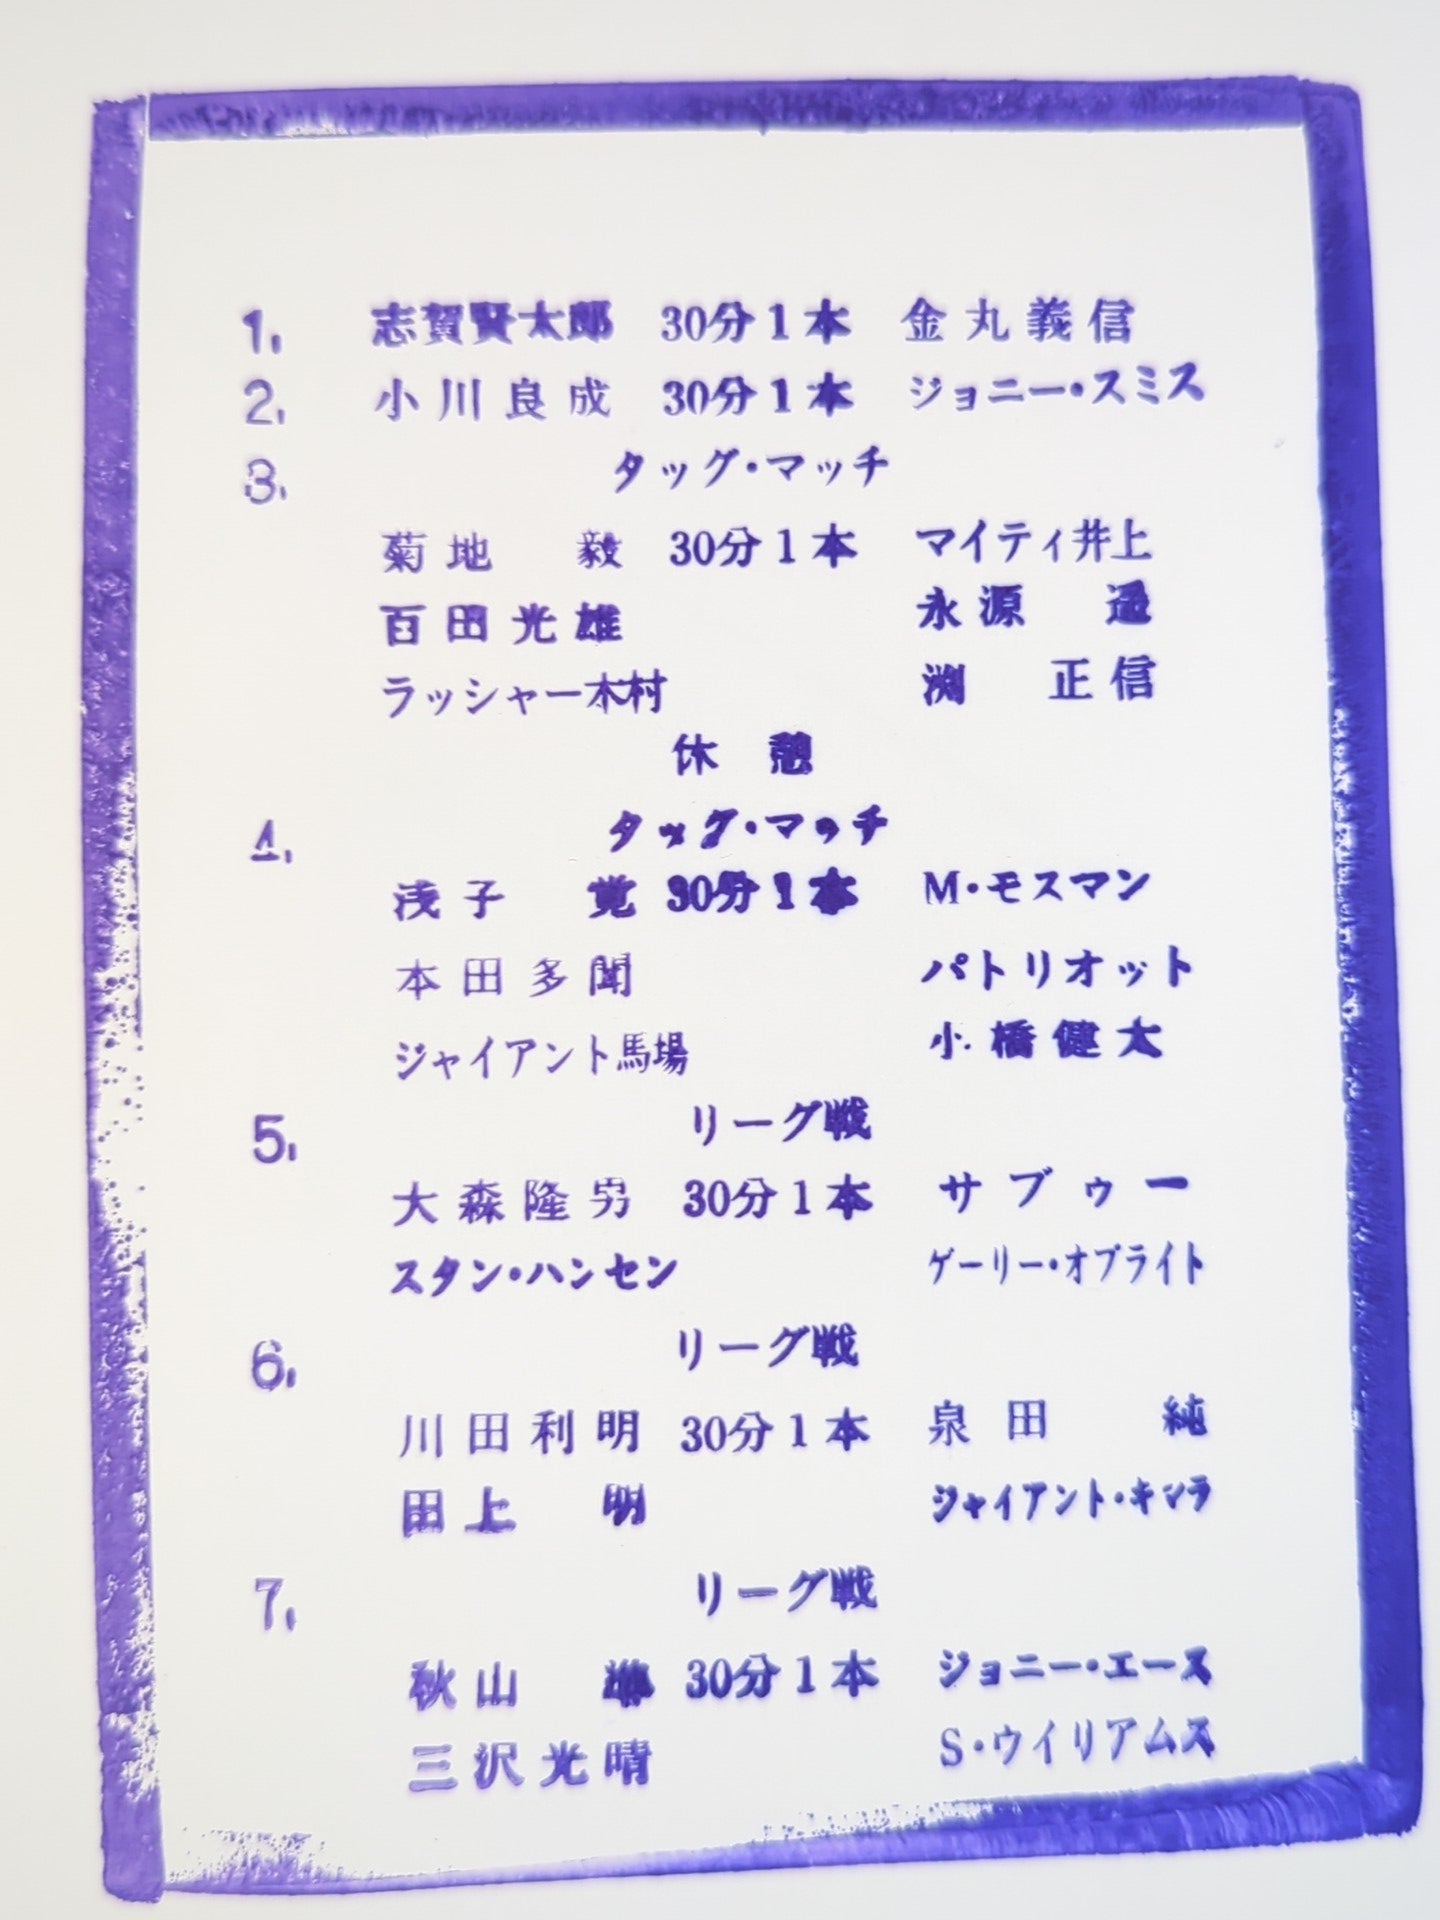 1. 志賀賢太郎 30分1本 金丸義信
2. 小川良成 30分1本 ジョニー・スミス
3. タッグ・マッチ
菊地 毅 30分1本 マイティ井上
百田光雄 永源 遥
ラッシャー木村 渕 正信
休 憩
4. タッグ・マッチ
浅子 覚 30分1本 M・モスマン
本田多聞 パトリオット
ジャイアント馬場 小橋健太
5. リーグ戦
大森隆男 30分1本 サブゥー
スタン・ハンセン ゲーリー・オブライト
6. リーグ戦
川田利明 30分1本 泉田 純
田上 明 ジャイアント・キマラ
7. リーグ戦
秋山 準 30分1本 ジョニー・エース
三沢光晴 S・ウイリアムス